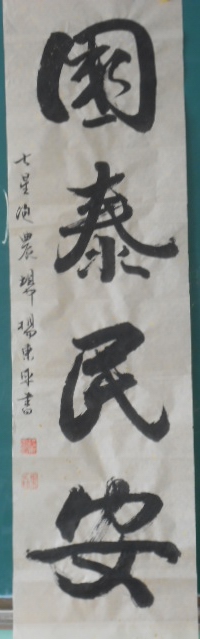 國泰民安
七星泡農場楊東平書